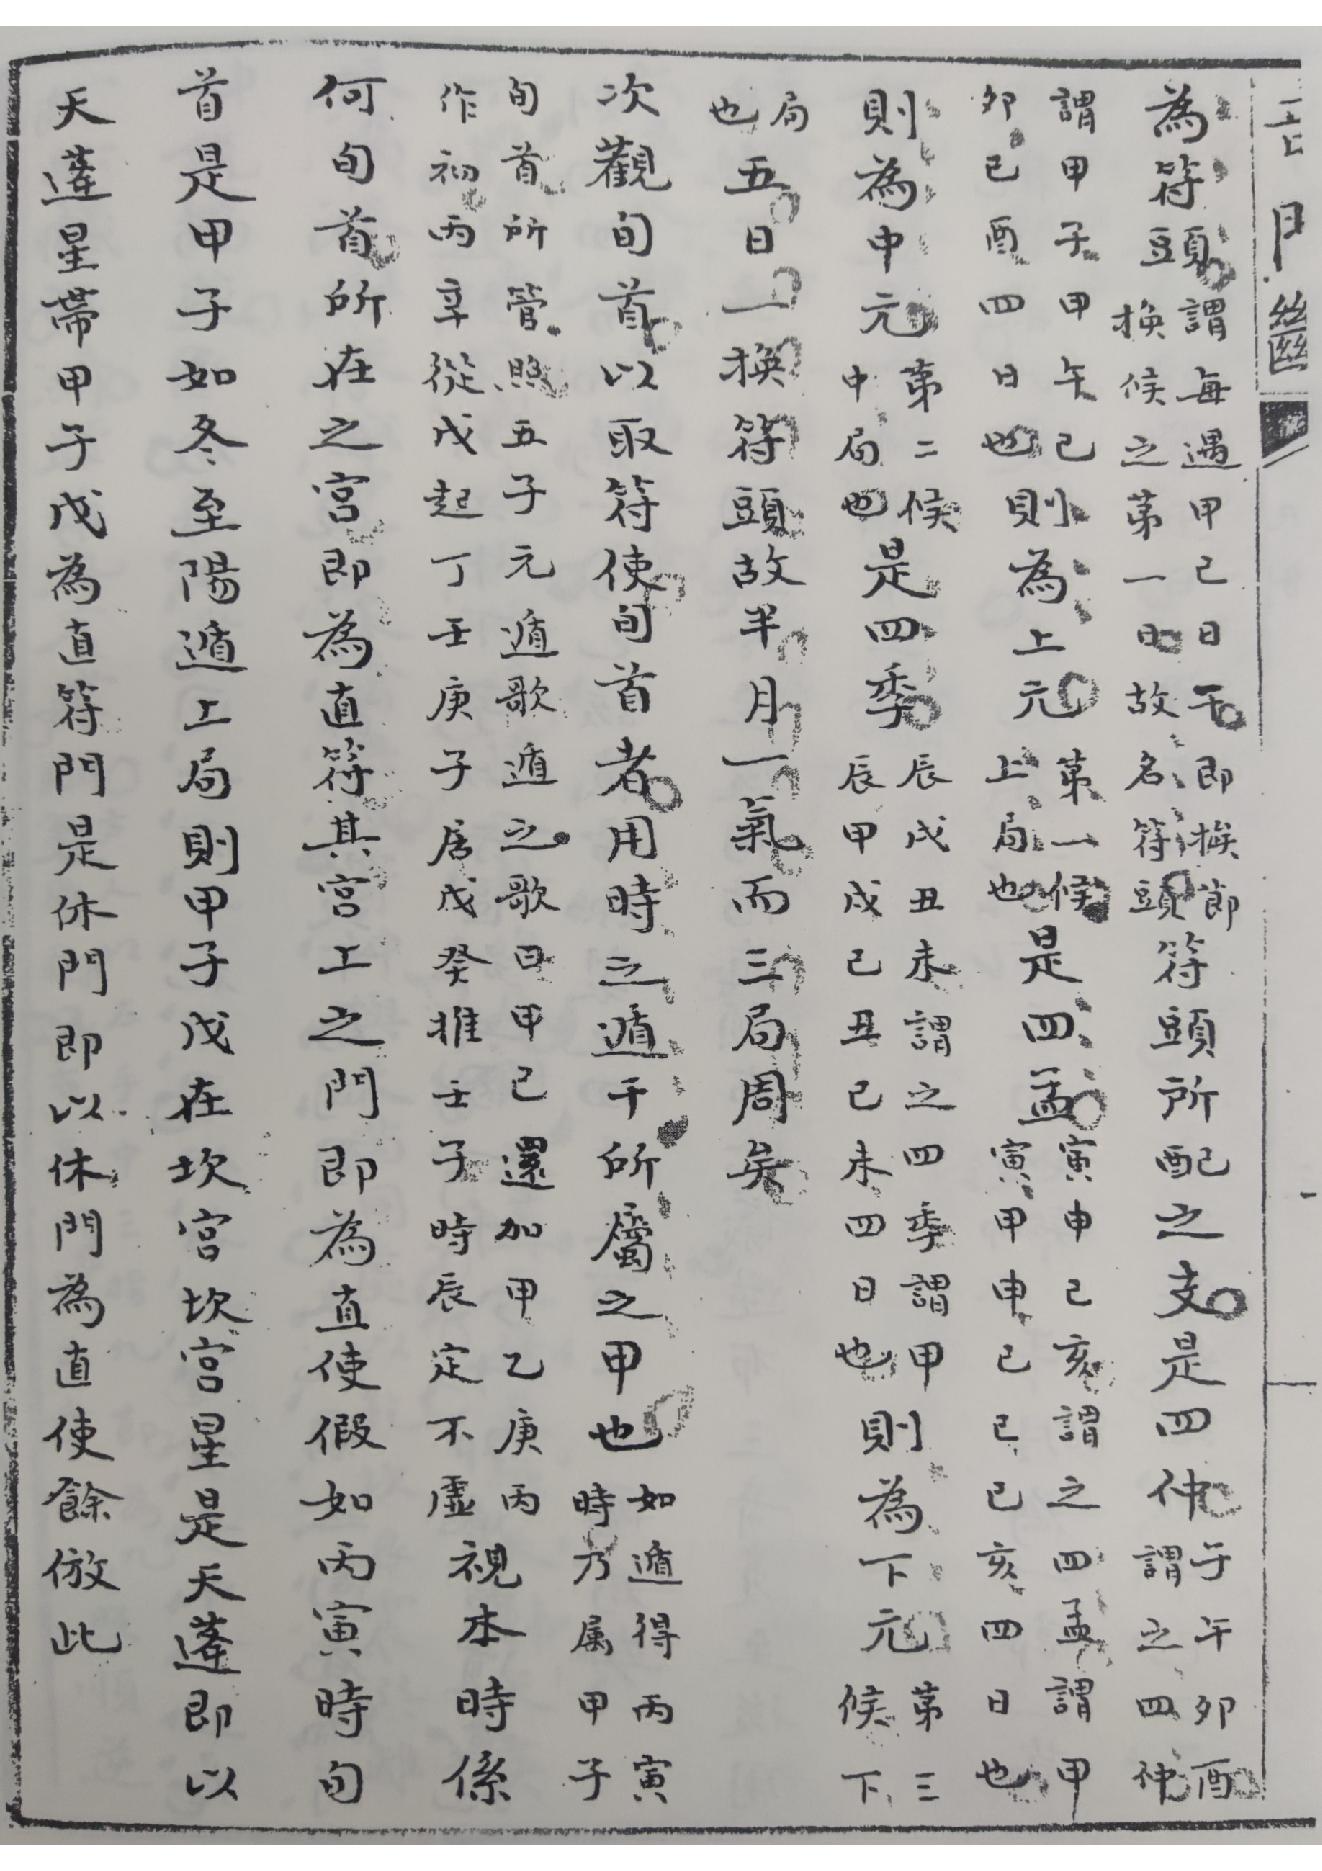 為符頭謂每遇甲己日干即換節換候之第一日故名符頭符頭所配之支是四仲子午卯酉謂之四仲
謂甲子甲午己卯己酉四日也則為上元第一候上局也是四孟寅申己亥謂之四孟謂甲寅甲申己巳己亥四日也
則為中元第二候中局也是四季辰戌丑未謂之四季謂甲辰甲戌己丑己未四日也則為下元第三候下
局也五日一換符頭故半月一氣而三局周矣
次觀旬首以取符使旬首者用時之遁干所屬之甲也如遁得丙寅時乃属甲子
旬首所管照五子元遁歌遁之歌曰甲己還加甲乙庚丙作初丙辛從戊起丁壬庚子居戊癸推壬子時辰定不虛視本時係
何旬首所在之宮即為直符其宮上之門即為直使假如丙寅時旬
首是甲子如冬至陽遁上局則甲子戊在坎宮坎宮星是天蓬即以
天蓬星帶甲子戊為直符門是休門即以休門為直使餘倣此